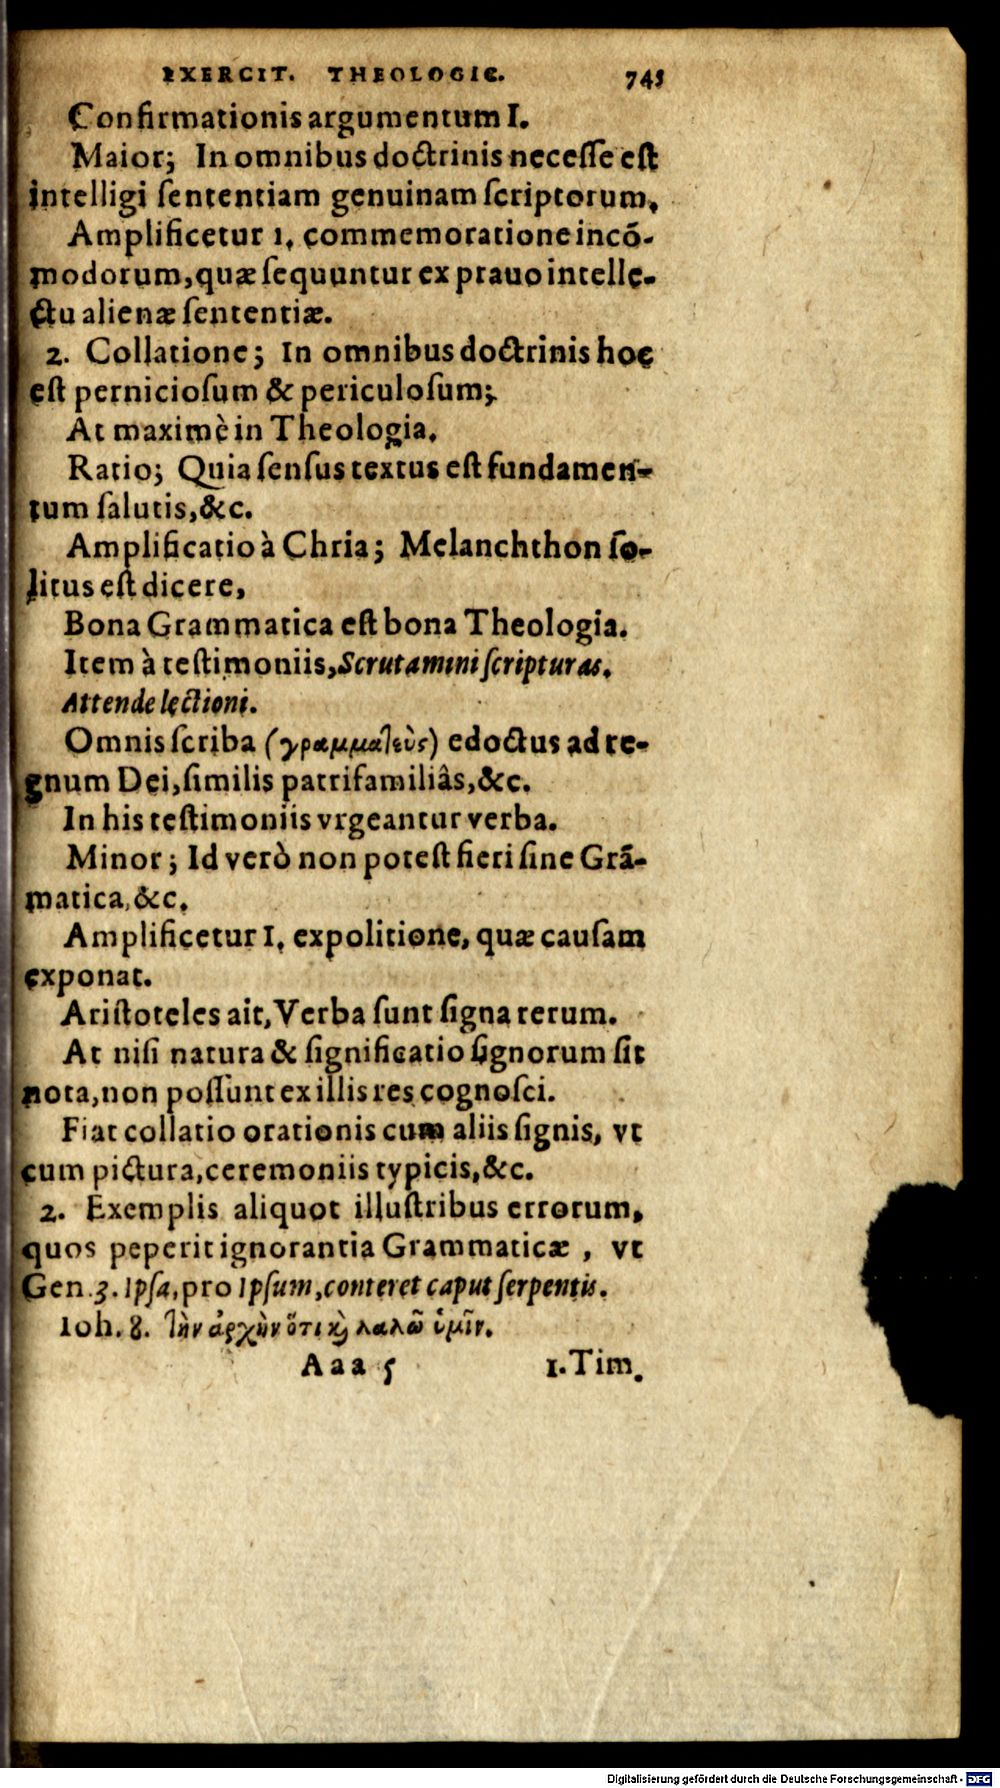 EXERCIT. THEOLOGIC. 745
Confirmationis argumentum I.
Maior; In omnibus doctrinis necesse est
intelligi sententiam genuinam scriptorum.
Amplificetur 1. commemoratione incō-
modorum, quæ sequuntur ex prauo intelle-
ctu alienæ sententiæ.
2. Collatione; In omnibus doctrinis hoc
est perniciosum & periculosum;
At maximè in Theologia.
Ratio; Quia sensus textus est fundamen-
tum salutis, &c.
Amplificatio à Chria; Melanchthon so-
litus est dicere,
Bona Grammatica est bona Theologia.
Item à testimoniis, Scrutamini scripturas.
Attende lectioni.
Omnis scriba (γραμματεὺς) edoctus ad re-
gnum Dei, similis patrifamiliâs, &c.
In his testimoniis vrgeantur verba.
Minor; Id verò non potest fieri sine Grā-
matica, &c.
Amplificetur I. expolitione, quæ causam
exponat.
Aristoteles ait, Verba sunt signa rerum.
At nisi natura & significatio signorum sit
nota, non possunt ex illis res cognosci.
Fiat collatio orationis cum aliis signis, vt
cum pictura, ceremoniis typicis, &c.
2. Exemplis aliquot illustribus errorum,
quos peperit ignorantia Grammaticæ, vt
Gen. 3. Ipsa, pro Ipsum, conteret caput serpentis.
Ioh. 8. Τὴν ἀρχὴν ὅτι ϗ λαλῶ ὑμῖν.
Aaa 5 1. Tim.
Digitalisierung gefördert durch die Deutsche Forschungsgemeinschaft - DFG